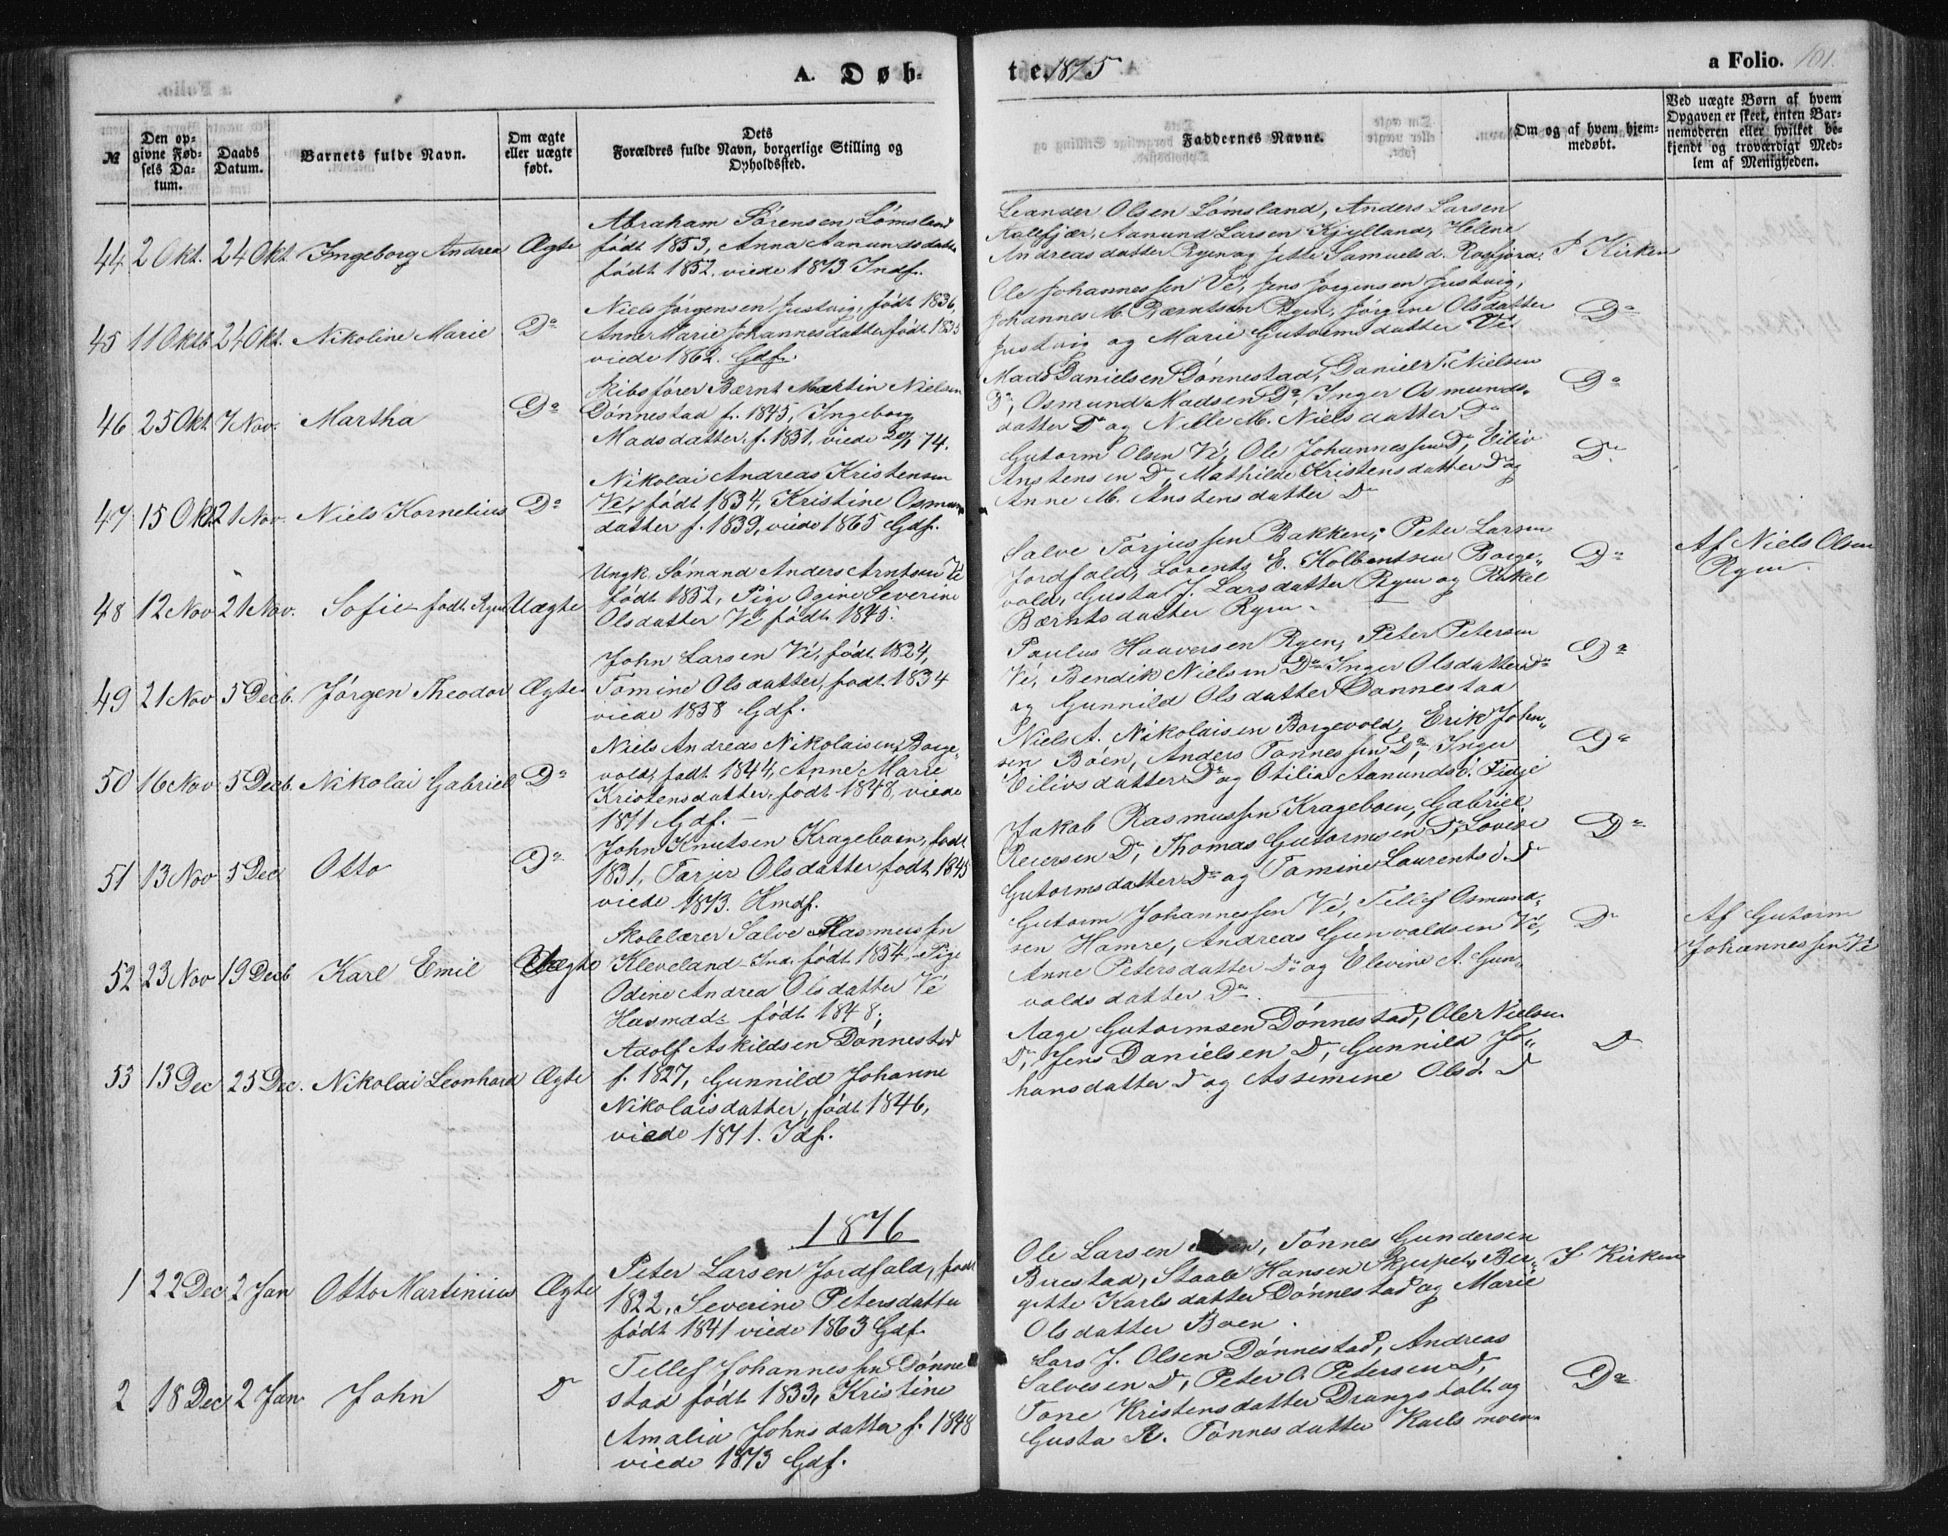 A. Døb-
te. 1875
a Folio. 101.
№
Den opgivne Fødsels Datum.
Daabs Datum.
Barnets fulde Navn.
Om ægte eller uægte født.
Dets Forældres fulde Navn, borgerlige Stilling og Opholdssted.
Faddernes Navne.
Om og af hvem hjemmedøbt.
Ved uægte Børn af hvem Opgaven er skeet, enten Barnemoderen eller hvilket bekjendt og troværdigt Medlem af Menigheden.
44 2 Okt. 24 Okt. Ingeborg Andrea Ægte
Abraham Sörensen Lömsland
födt 1853, Anna Aanundsdatter
födt 1852. viede 1873 Indf.
Leander Olsen Lömsland, Anders Larsen
Aanund Larsen Kjylland, Helene
Andreasdatter Ryen og Jette Samuelsd. Rosfjord.
I Kirken
45 11 Oktb 24 Okt. Nikoline Marie Do
Niels Jörgensen Justvig, födt 1836,
Anne Marie Johannesdatter födt 1835
viede 1862. Gdf.
Ole Johannessen Vé, Jens Jörgensen Justvig,
Johannes M. Bærntsen Ryen, Jörgine Olsdatter
Justvig og Marie Gutormsdatter Vé
Do
46 25 Okt 7 Nov. Martha Do
Skibsförer Bærnt Martin Nielsen
Dönnestad f. 1845, Ingeborg
Madsdatter, f. 1851, viede 20/7 74.
Mads Danielsen Dönnestad, Daniel T. Nielsen
Do, Osmund Madsen Do, Inger Osmunds-
datter Do og Nille M. Nielsdatter Do
Do
47 15 Okt 21 Nov. Niels Kornelius Do
Nikolai Andreas Kristensen
Vé, födt 1834, Kristine Osmun
datter f. 1839, viede 1865 Gdf.
Gutorm Olsen Vé, Ole Johannessen Do, Eiliv
Anstensen Do, Mathilde Kristensdatter Do og
Anne M. Anstensdatter Do
Do
48 12 Nov 21 Nov. Sofie födt Ryen Uægte
Ungk. Sömand Anders Arntsen Vé
födt 1852, Pige Ogine Severine
Olsdatter Vé födt 1845.
Salve Torjussen Bakken, Peter Larsen
Jordfald, Lorents E. Kolbentsen Borge-
vold, Gusta J. Larsdatter Ryen og Rakel
Bærntsdatter Ryen.
Do
Af Niels Olsen
Ryen.
49 21 Nov 5 Decb. Jörgen Theodor Ægte
John Larsen Vé, födt 1824,
Tomine Olsdatter, födt 1834
viede 1858 Gdf.
Paulus Haaversen Ryen, Peter Petersen
Vé, Bendik Nielsen Do Inger Olsdatter Do
og Gunnild Olsdatter Dönnestad
Do
50 16 Nov 5 Decb. Nikolai Gabriel Do
Niels Andreas Nikolaisen Borge-
vold, födt 1844, Anne Marie
Kristensdatter, födt 1848, viede
1871 Gdf.
Niels A. Nikolaisen Borgevold, Erik John-
sen Böen, Anders Tönnessen Do, Inger
Eilivsdatter Do og Otilia Aanundsd. Fidje
Do
51 13 Nov 5 Dec Otto Do
John Knutsen Krageboen, födt
1831, Tarjer Olsdatter födt 1845
viede 1873. Hmdf.
Jakob Rasmussen Krageboen, Gabriel
Reiersen Do, Thomas Gutormsen Do, Lovise
Gutormsdatter Do og Tomine Laurentsd. Do
Do
52 23 Nov 19 Decb Karl Emil Uægte
Skolelærer Salve Rasmussen
Kleveland Ind. födt 1854, Pige
Odine Andrea Olsdatter Vé
Husmdd. födt 1848;
Gutorm Johannessen Vé, Tellef Osmund-
sen Hamre, Andreas Gunvaldsen Vé,
Anne Petersdatter Do og Elevine A. Gun-
valdsdatter Do.
Do
Af Gutorm
Johannessen Vé
53 13 Dec 25 Dec. Nikolai Leonhard Ægte
Adolf Askildsen Dönnestad
f. 1827, Gunnild Johanne
Nikolaisdatter, födt 1846,
viede 1871. Idf.
Aage Gutormsen Dönnestad, Ole Nielsen
Do, Jens Danielsen Do, Gunnild Jo-
hansdatter Do og Assemine Olsd. Do
Do
1876
1 22 Dec 2 Jan Otto Martinius Ægte
Peter Larsen Jordfald, födt
1822, Severine Petersdatter
födt 1841 viede 1863 Gdf.
Ole Larsen Tönnes Gundersen
Buestad, Staale Hansen Skjupet, Ber-
gitte Karlsdatter Dönnestad og Marie
Olsdatter Boen.
I Kirken
2 18 Dec 2 Jan John Do
Tellef Johannessen Dönne
stad födt 1833, Kristine
Amalia Johnsdatter f. 1848
viede 1873 Gdf.
Lars J. Olsen Dönnestad, Andreas
Salvesen Do, Peter O. Petersen Do,
Tone Kristensdatter Drangsholt og
Gusta R. Tönnesdatter Karlsmoen
Do